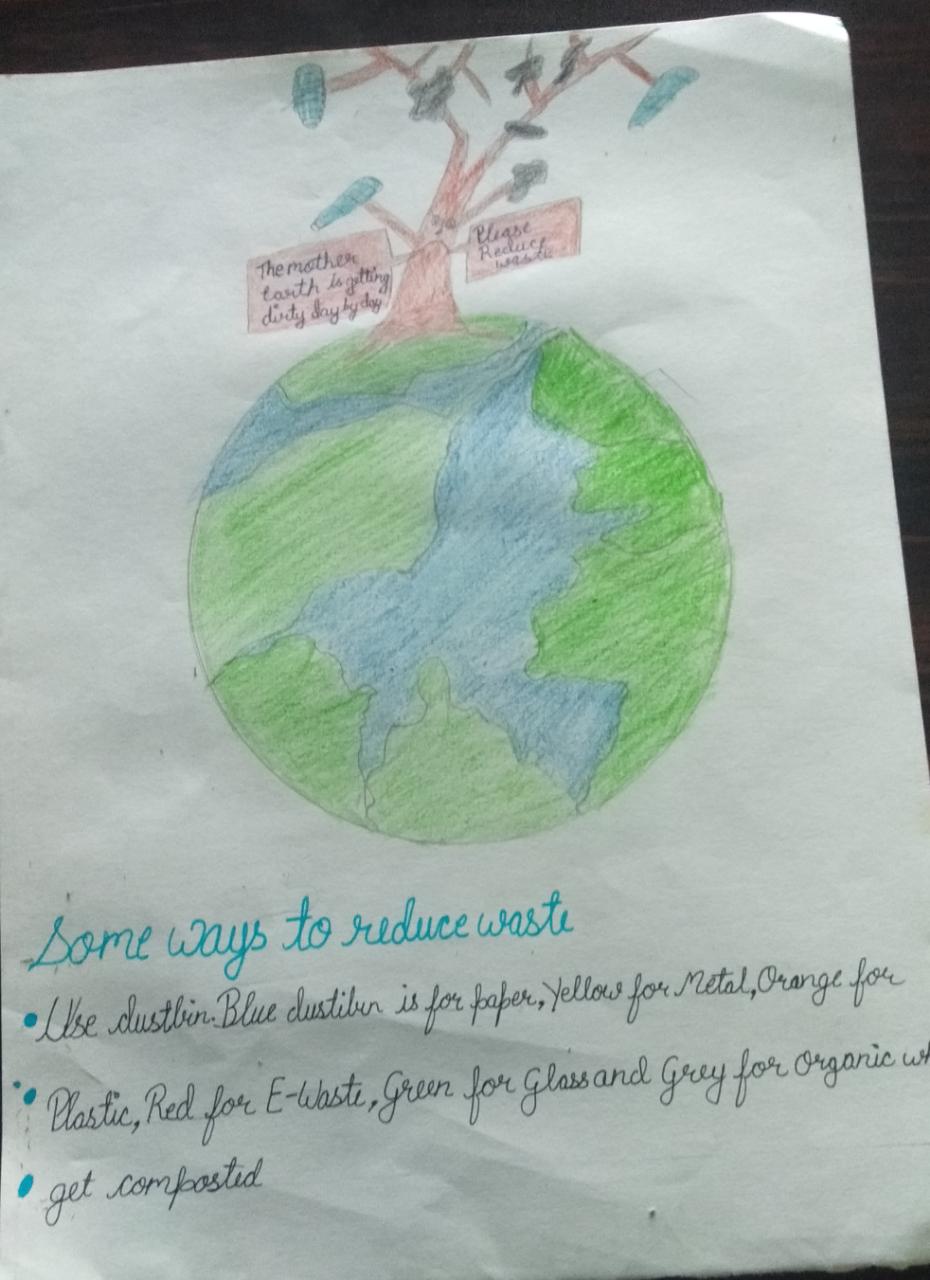 The mother
Earth is getting
dirty day by day
Please
Reduce
waste
Some ways to reduce waste
Use dustbin. Blue dustibin is for paper, Yellow for Metal, Orange for
Plastic, Red for E-Waste, Green for Glass and Grey for Organic
get composted